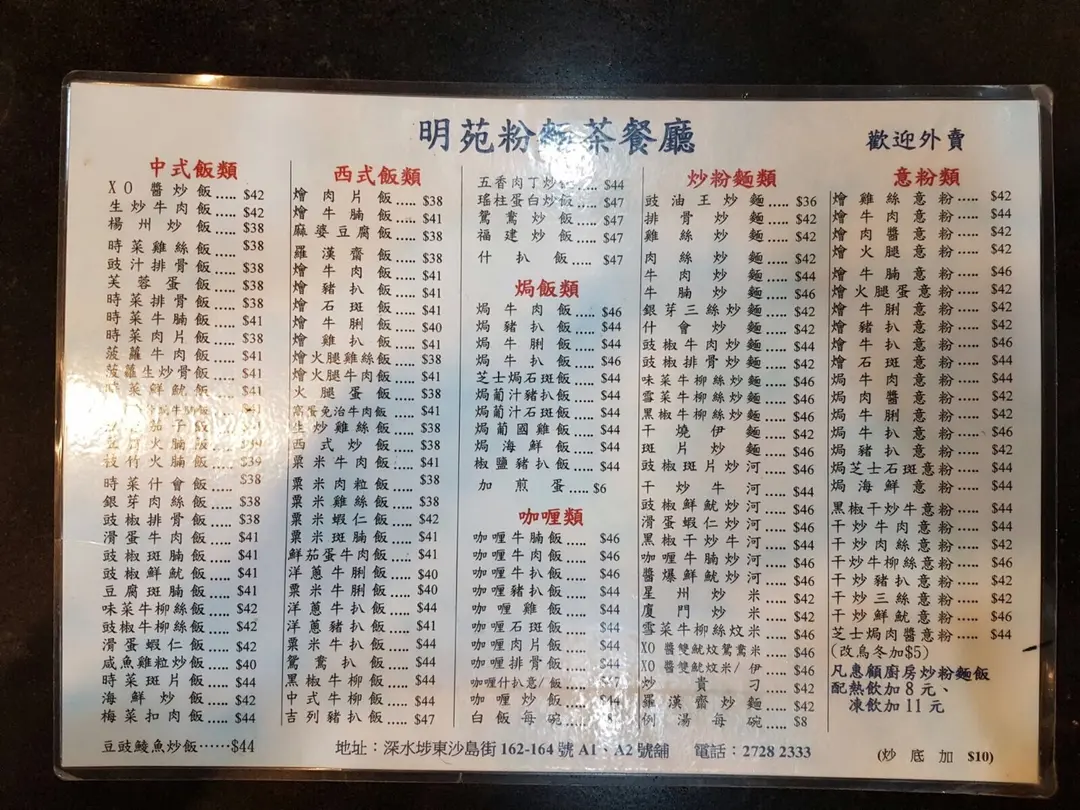 明苑粉麵茶餐廳
歡迎外賣
中式飯類
XO醬炒飯.....$42
生炒牛肉飯.....$42
楊州炒飯.....$38
時菜雞絲飯.....$38
豉汁排骨飯.....$38
芙蓉蛋飯.....$38
時菜排骨飯.....$38
時菜牛腩飯.....$41
時菜肉片飯.....$38
菠蘿牛肉飯.....$41
菠蘿生炒骨飯.....$41
時菜鮮魷飯.....$41
飯.....$41
茄子飯.....
火腩飯.....$39
枝竹火腩飯.....$39
時菜什會飯.....$38
銀芽肉絲飯.....$38
豉椒排骨飯.....$38
滑蛋牛肉飯.....$41
豉椒斑腩飯.....$41
豉椒鮮魷飯.....$41
豆腐斑腩飯.....$41
味菜牛柳絲飯.....$42
豉椒牛柳絲飯.....$42
滑蛋蝦仁飯.....$42
咸魚雞粒炒飯.....$40
時菜斑片飯.....$44
海鮮炒飯.....$42
梅菜扣肉飯.....$44
豆豉鯪魚炒飯······$44
西式飯類
燴肉片飯.....$38
燴牛腩飯.....$41
麻婆豆腐飯.....$38
羅漢齋飯.....$38
燴牛肉飯.....$41
燴豬扒飯.....$41
燴石斑飯.....$41
燴牛脷飯.....$40
燴雞扒飯.....$41
燴火腿雞絲飯.....$38
燴火腿牛肉飯.....$41
火腿蛋飯.....$38
窩蛋免治牛肉飯.....$41
生炒雞絲飯.....$38
西式炒飯.....$38
粟米牛肉飯.....$41
粟米肉粒飯.....$38
粟米雞絲飯.....$38
粟米蝦仁飯.....$42
粟米斑腩飯.....$41
鮮茄蛋牛肉飯.....$41
洋蔥牛脷飯.....$40
粟米牛脷飯.....$40
洋蔥牛扒飯.....$44
洋蔥豬扒飯.....$41
粟米牛扒飯.....$44
鴛鴦扒飯.....$44
黑椒牛柳飯.....$44
中式牛柳飯.....$44
吉列豬扒飯.....$47
五香肉丁炒飯.....$44
瑤柱蛋白炒飯.....$47
鴛鴦炒飯.....$47
福建炒飯.....$47
什扒飯.....$47
焗飯類
焗牛肉飯.....$46
焗豬扒飯.....$44
焗牛脷飯.....$44
焗牛扒飯.....$46
芝士焗石斑飯.....$44
焗葡汁豬扒飯.....$44
焗葡汁石斑飯.....$44
焗葡國雞飯.....$44
焗海鮮飯.....$44
椒鹽豬扒飯.....$44
加煎蛋.....$6
咖喱類
咖喱牛腩飯.....$46
咖喱牛肉飯.....$46
咖喱牛扒飯.....$46
咖喱豬扒飯.....$44
咖喱雞飯.....$44
咖喱石斑飯.....$44
咖喱肉片飯.....$44
咖喱排骨飯.....$44
咖喱什扒意/飯.....$47
咖喱炒飯.....$44
白飯每碗.....$8
炒粉麵類
豉油王炒麵.....$36
排骨炒麵.....$42
雞絲炒麵.....$42
肉絲炒麵.....$42
牛肉炒麵.....$44
牛腩炒麵.....$46
銀芽三絲炒麵.....$42
什會炒麵.....$42
豉椒牛肉炒麵.....$44
豉椒排骨炒麵.....$42
味菜牛柳絲炒麵.....$46
雪菜牛柳絲炒麵.....$46
黑椒牛柳絲炒麵.....$46
干燒伊麵.....$42
斑片炒麵.....$46
豉椒斑片炒河.....$46
干炒牛河.....$44
豉椒鮮魷炒河.....$44
滑蛋蝦仁炒河.....$44
黑椒干炒牛河.....$44
咖喱牛腩炒河.....$46
醬爆鮮魷炒河.....$44
星州炒米.....$42
廈門炒米.....$42
雪菜牛柳絲炆米.....$46
XO醬雙魷炆鴛鴦米.....$46
XO醬雙魷炆米/伊.....$46
炒貴刁.....$42
羅漢齋炒麵.....$42
例湯每碗.....$8
意粉類
燴雞絲意粉.....$42
燴牛肉意粉.....$44
燴肉醬意粉.....$42
燴火腿意粉.....$42
燴牛腩意粉.....$46
燴火腿蛋意粉.....$42
燴牛脷意粉.....$42
燴豬扒意粉.....$42
燴牛扒意粉.....$46
燴石斑意粉.....$44
焗牛肉意粉.....$44
焗肉醬意粉.....$42
焗牛脷意粉.....$42
焗牛扒意粉.....$46
焗豬扒意粉.....$42
焗芝士石斑意粉.....$44
焗海鮮意粉.....$44
黑椒干炒牛意粉.....$44
干炒牛肉意粉.....$44
干炒肉絲意粉.....$42
干炒牛柳絲意粉.....$46
干炒豬扒意粉.....$42
干炒三絲意粉.....$42
干炒鮮魷意粉.....$46
芝士焗肉醬意粉.....$44
(改烏冬加$5)
凡惠顧廚房炒粉麵飯
配熱飲加8元、
凍飲加11元
地址：深水埗東沙島街162-164號A1、A2號舖 電話：2728 2333
(炒底加 $10)